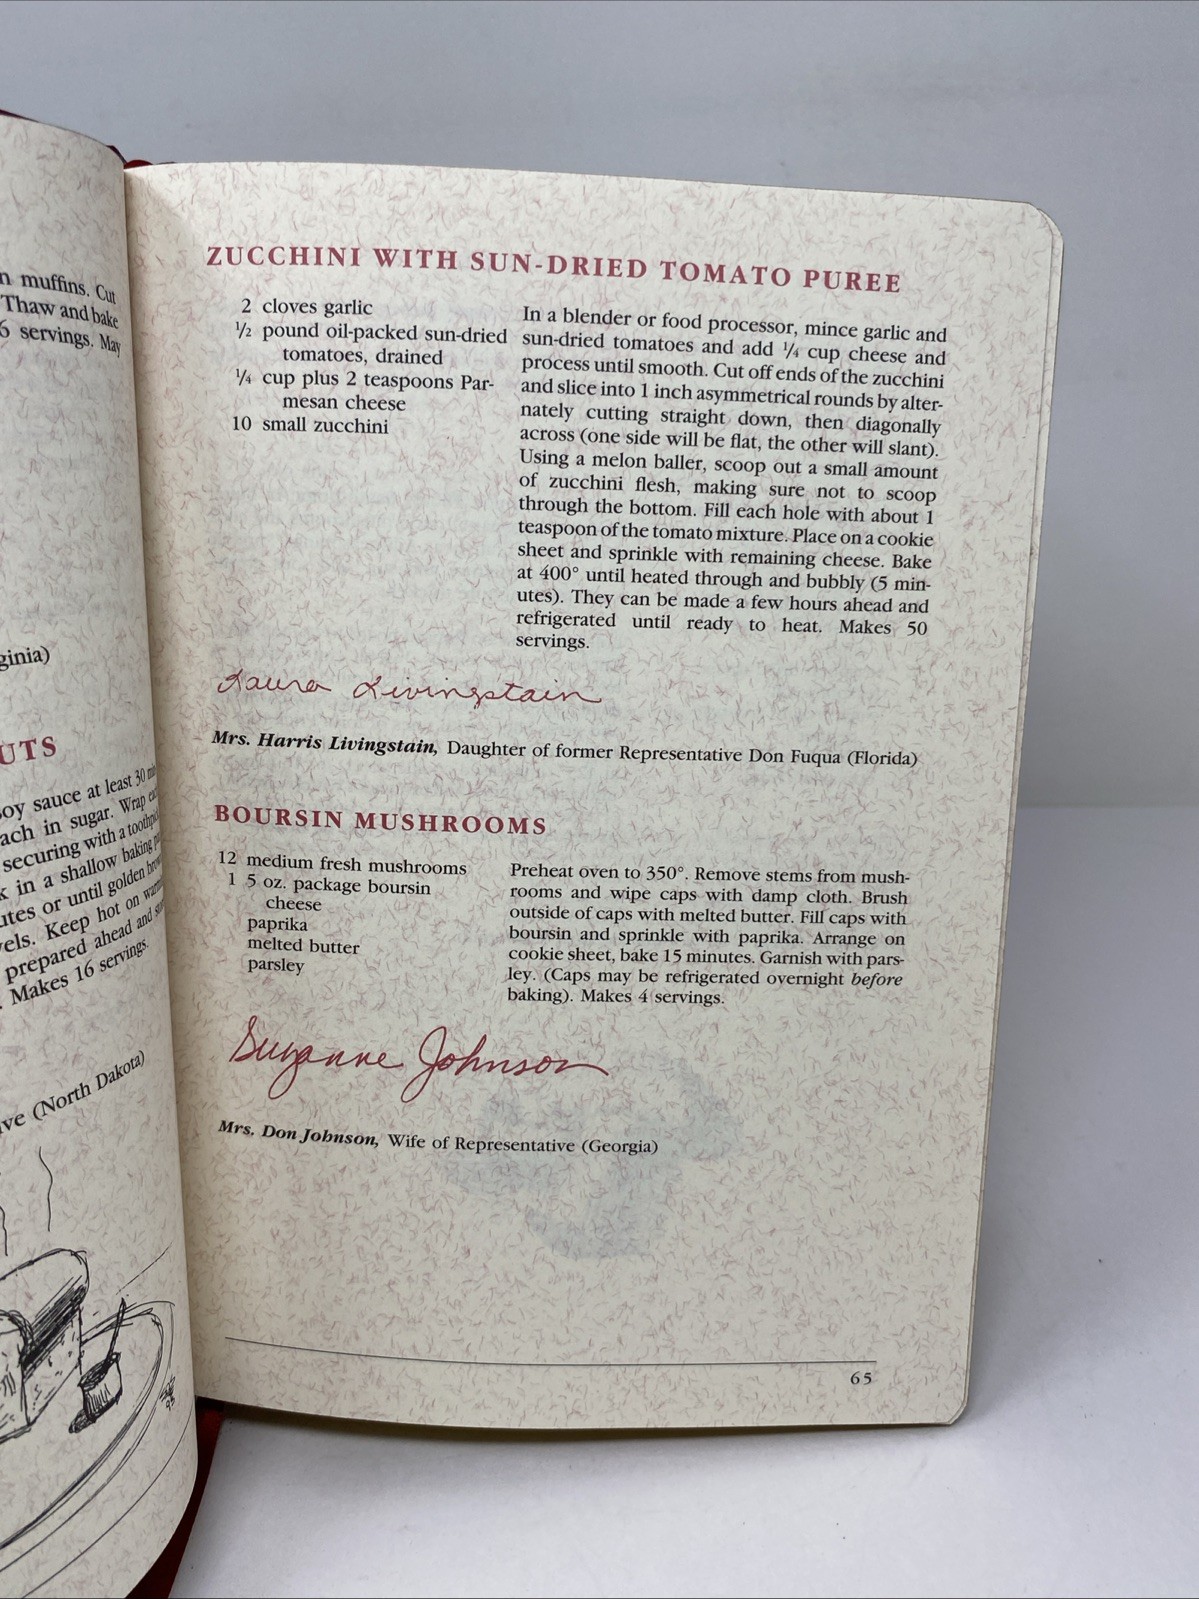 n muffins. Cut
Thaw and bake
6 servings. May
ginia)
UTS
oy sauce at least 30
ach in sugar. Wrap
securing with a
k in a shallow baking
utes or until golden
vels. Keep hot on
prepared ahead and
. Makes 16 servings.
ve (North Dakota)
ZUCCHINI WITH SUN-DRIED TOMATO PUREE
2 cloves garlic
½ pound oil-packed sun-dried
tomatoes, drained
¼ cup plus 2 teaspoons Par-
mesan cheese
10 small zucchini
In a blender or food processor, mince garlic and
sun-dried tomatoes and add ¼ cup cheese and
process until smooth. Cut off ends of the zucchini
and slice into 1 inch asymmetrical rounds by alter-
nately cutting straight down, then diagonally
across (one side will be flat, the other will slant).
Using a melon baller, scoop out a small amount
of zucchini flesh, making sure not to scoop
through the bottom. Fill each hole with about 1
teaspoon of the tomato mixture. Place on a cookie
sheet and sprinkle with remaining cheese. Bake
at 400° until heated through and bubbly (5 min-
utes). They can be made a few hours ahead and
refrigerated until ready to heat. Makes 50
servings.
Laura Livingstain
Mrs. Harris Livingstain, Daughter of former Representative Don Fuqua (Florida)
BOURSIN MUSHROOMS
12 medium fresh mushrooms
1 5 oz. package boursin
cheese
paprika
melted butter
parsley
Preheat oven to 350°. Remove stems from mush-
rooms and wipe caps with damp cloth. Brush
outside of caps with melted butter. Fill caps with
boursin and sprinkle with paprika. Arrange on
cookie sheet, bake 15 minutes. Garnish with pars-
ley. (Caps may be refrigerated overnight before
baking). Makes 4 servings.
Suzanne Johnson
Mrs. Don Johnson, Wife of Representative (Georgia)
65